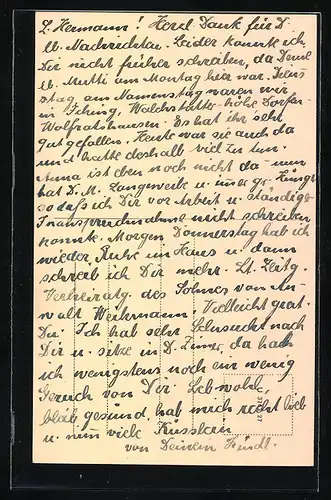 L. Hermann! Herzl. Dank für D.
lb. Nachrichten. Leider konnte ich
Dir nicht früher schreiben, da Deine
lb. Mutti am Montag hier war. Diens
tag am Namenstag waren wir
in Icking, Walchstatte-höhe Dorfen-
Wolfratshausen. Es hat ihr sehr
gut gefallen. Heute war sie auch da
und hatte deshalb viel zu tun.
Anna ist eben noch nicht da - nun
hat D. M. Langweile u. unser gr.
so daß ich Dir vor Arbeit u. ständiger
Inanspruchnahme nicht schreiben
konnte. Morgen Donnerstag hab ich
wieder Ruhe im Haus u. dann
schreib ich Dir mehr. Lt. Zeitg.
Verheiratg. des Sohnes von An-
walt Weikmann. Vielleicht grat.
Du. Ich hab sehr Sehnsucht nach
Dir u. sitze in D. Zimer, da hab
ich wenigstens noch ein wenig
Geruch von Dir. Leb wohl,
bleib gesund, hab mich recht lieb
u. nun viele Küsslein
von Deinem Kindl.